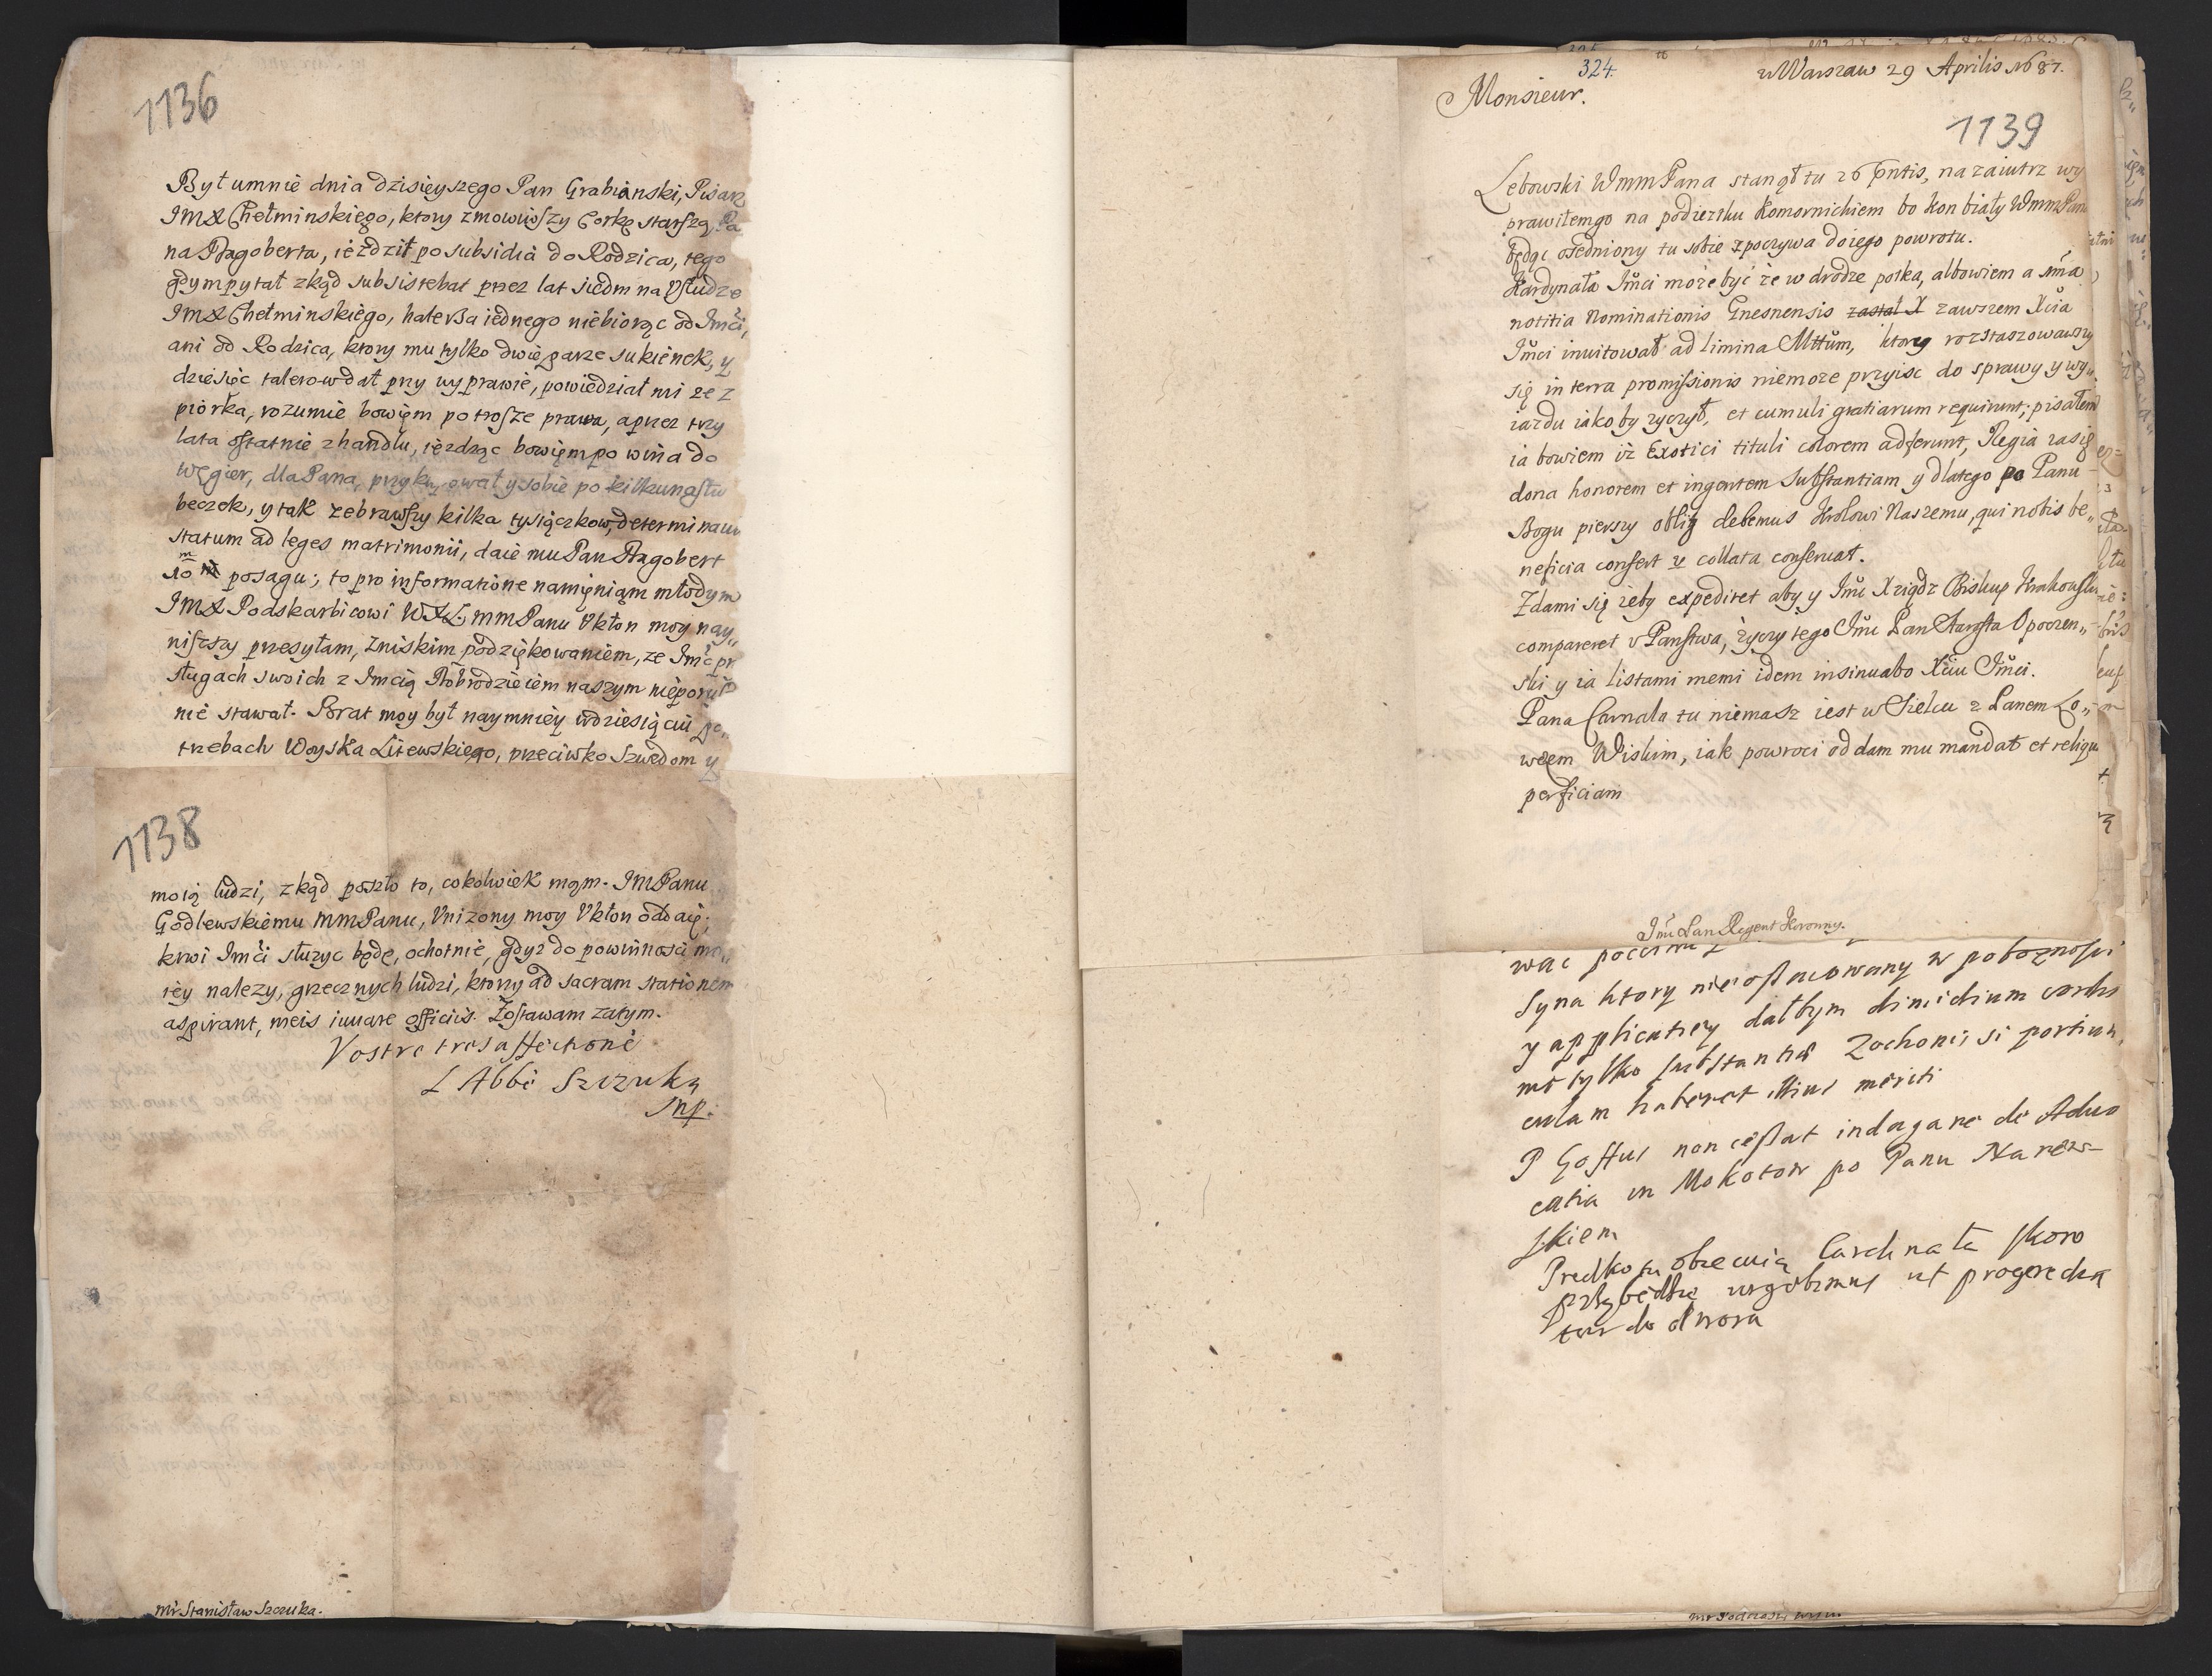 1136
Był umnie dnia dzisieyszego Pan Grabianski, Pisarz
IMX Chełminskiego, ktory zmowiwszy Corkę starszą, Pa
na Dagoberta, ieździł po subsidia do Rodzica, tego
gdym pytał zkąd subsistebat przez lat siedm na Usłudze
IMX Chełminskiego, halerza iednego niebiorąc od Imći,
ani od Rodzica, ktory mu tylko dwie parze sukienek, y
dziesięc talerow dał przy wyprawie, powiedział mi ze z
piorka, rozumie bowięm po trosze prawa, a przez trzy
lata ostatnie z handlu, ieżdząc bowięm po wina do
Węgier, dla Pana, przykupował y sobie po kilkunastu
beczek, y tak zebrawszy kilka tysiączkow, determinauit
statum ad leges matrimonii, daie mu Pan Dagobert
posagu; to pro informatione namięniąm młodym
IMX Podskarbicowi WXL. mmPanu Ukłon moy nay„
niższy przesyłam, zniskim podziękowaniem, ze Imć pr
sługach swoich z Imcią Dobrodzieiem naszym
nie stawał. Brat moy był naymniey wdziesiąciu po„
trzebach Woyska Litewskiego, przeciwko Szwedom y
1138
moią ludzi, zkąd poszło to, cokolwiek mąm. IMPanu
Godlewskiemu MMPanu, Unizony moy Ukłon oddaię;
krwi Imći służyc będę, ochotnie, gdyz do powinnosci mo„
iey nalezy, grzecznych ludzi, ktorzy ad sacram stationem
aspirant, meis iuuare officiis. Zostawam zatym.
Vostre tres affectioné
L Abbé Szczuka
mp.
Mr Stanisław Szczuka.
324.
w Warszaw 29 Aprilis 1687.
Monsieur.
1139
Lebowski WmmPana stanął tu 26 pntis, nazaiutrz wy
prawiłemgo na podiezdku Komornichiem bo kon biały WmmPana
będąc osedniony tu sobie zpoczywa do iego powrotu.
Kardynała Imći może być że w drodze potka, albowiem a
notitia Nominationis Gnesnensis zastał X zawszem Xcia
Imći inuitował ad limina, ktory rozstaszowawszy
się in terra promissionis niemoze przyisc do sprawy y wy„
iazdu iakoby zyczył, et cumuli gratiarum requirunt; pisałem
ia bowiem iż Exotici tituli colorem adferunt, Regia zasię
dona honorem et ingentem Substantiam y dlatego po Panu
Bogu pierszy oblig debemus Krolowi Naszemu, qui nobis be„
neficia confert et collata conseruat.
Zdami się żeby expediret aby y Imć Xsiądz Biskup Krakowski
compareret v Panstwa, życzy tego Imć Pan Starosta Opoczen„
ski y ia listami memi idem insinuabo Xciu Imći.
Pana tu niemasz iest w Sielcu z Panem Ło„
wczem Wiskim, iak powroci oddam mu mandat et reliqua
perficiam
Imć Pan Regent Koronny.
Syna ktory nieoszacowany w poboznosci
y applicatiey dałbym dimidium cordis
me tylko substantia Zochoniey si portiun„
culam haberet illius meriti
P Gostus non cessat indagare de Aduo
catia in Mokotow po Panu Narew„
skiem
Prędko tu obiecuią Cardinała skoro
przybędzie urgebimus ut progredia
tur do dwora